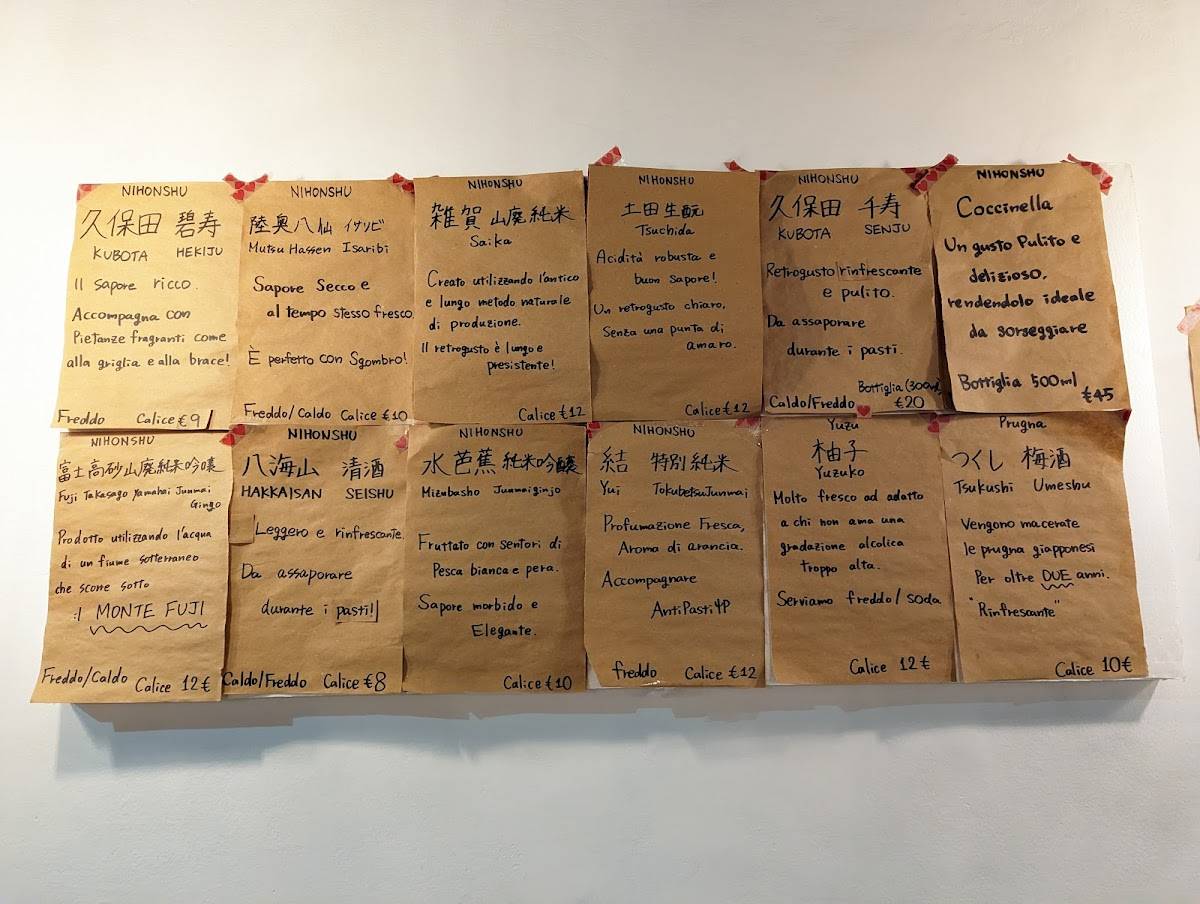 NIHONSHU
久保田 碧寿
KUBOTA HEKIJU
Il sapore ricco.
Accompagna con
Pietanze fragranti come
alla griglia e alla brace!
Freddo Calice €9
NIHONSHU
陸奥八仙 イサリビ
Mutsu Hassen Isaribi
Sapore Secco e
al tempo stesso fresco.
È perfetto con Sgombro!
Freddo/Caldo Calice €10
NIHONSHU
雑賀 山廃純米
Saika
Creato utilizzando l'antico
e lungo metodo naturale
di produzione.
Il retrogusto è lungo e
presistente!
Calice €12
NIHONSHU
土田 生酛
Tsuchida
Acidità robusta e
buon sapore!
Un retrogusto chiaro,
Senza una punta di
amaro.
Calice €12
NIHONSHU
久保田 千寿
KUBOTA SENJU
Retrogusto rinfrescante
e pulito.
Da assaporare
durante i pasti.
Bottiglia (300ml)
Caldo/Freddo €20
NIHONSHU
Coccinella
Un gusto Pulito e
delizioso,
rendendolo ideale
da sorseggiare
Bottiglia 500ml
€45
NIHONSHU
富士高砂山廃純米吟醸
Fuji Takasago Yamahai Junmai
Gingo
Prodotto utilizzando l'acqua
di un fiume sotterraneo
che scorre sotto
il MONTE FUJI
Freddo/Caldo Calice 12€
NIHONSHU
八海山 清酒
HAKKAISAN SEISHU
Leggero e rinfrescante.
Da assaporare
durante i pasti!
Caldo/Freddo Calice €8
NIHONSHU
水芭蕉 純米吟醸
Mizubasho Junmaiginjo
Fruttato con sentori di
Pesca bianca e pera.
Sapore morbido e
Elegante.
Calice €10
NIHONSHU
結 特別純米
Yui Tokubetsu Junmai
Profumazione Fresca,
Aroma di arancia.
Accompagnare
AntiPasti
freddo Calice €12
Yuzu
柚子
Yuzuko
Molto fresco ad adatto
a chi non ama una
gradazione alcolica
troppo alta.
Serviamo freddo/soda
Calice 12€
Prugna
つくし 梅酒
Tsukushi Umeshu
Vengono macerate
le prugna giapponesi
Per oltre DUE anni.
"Rinfrescante"
Calice 10€